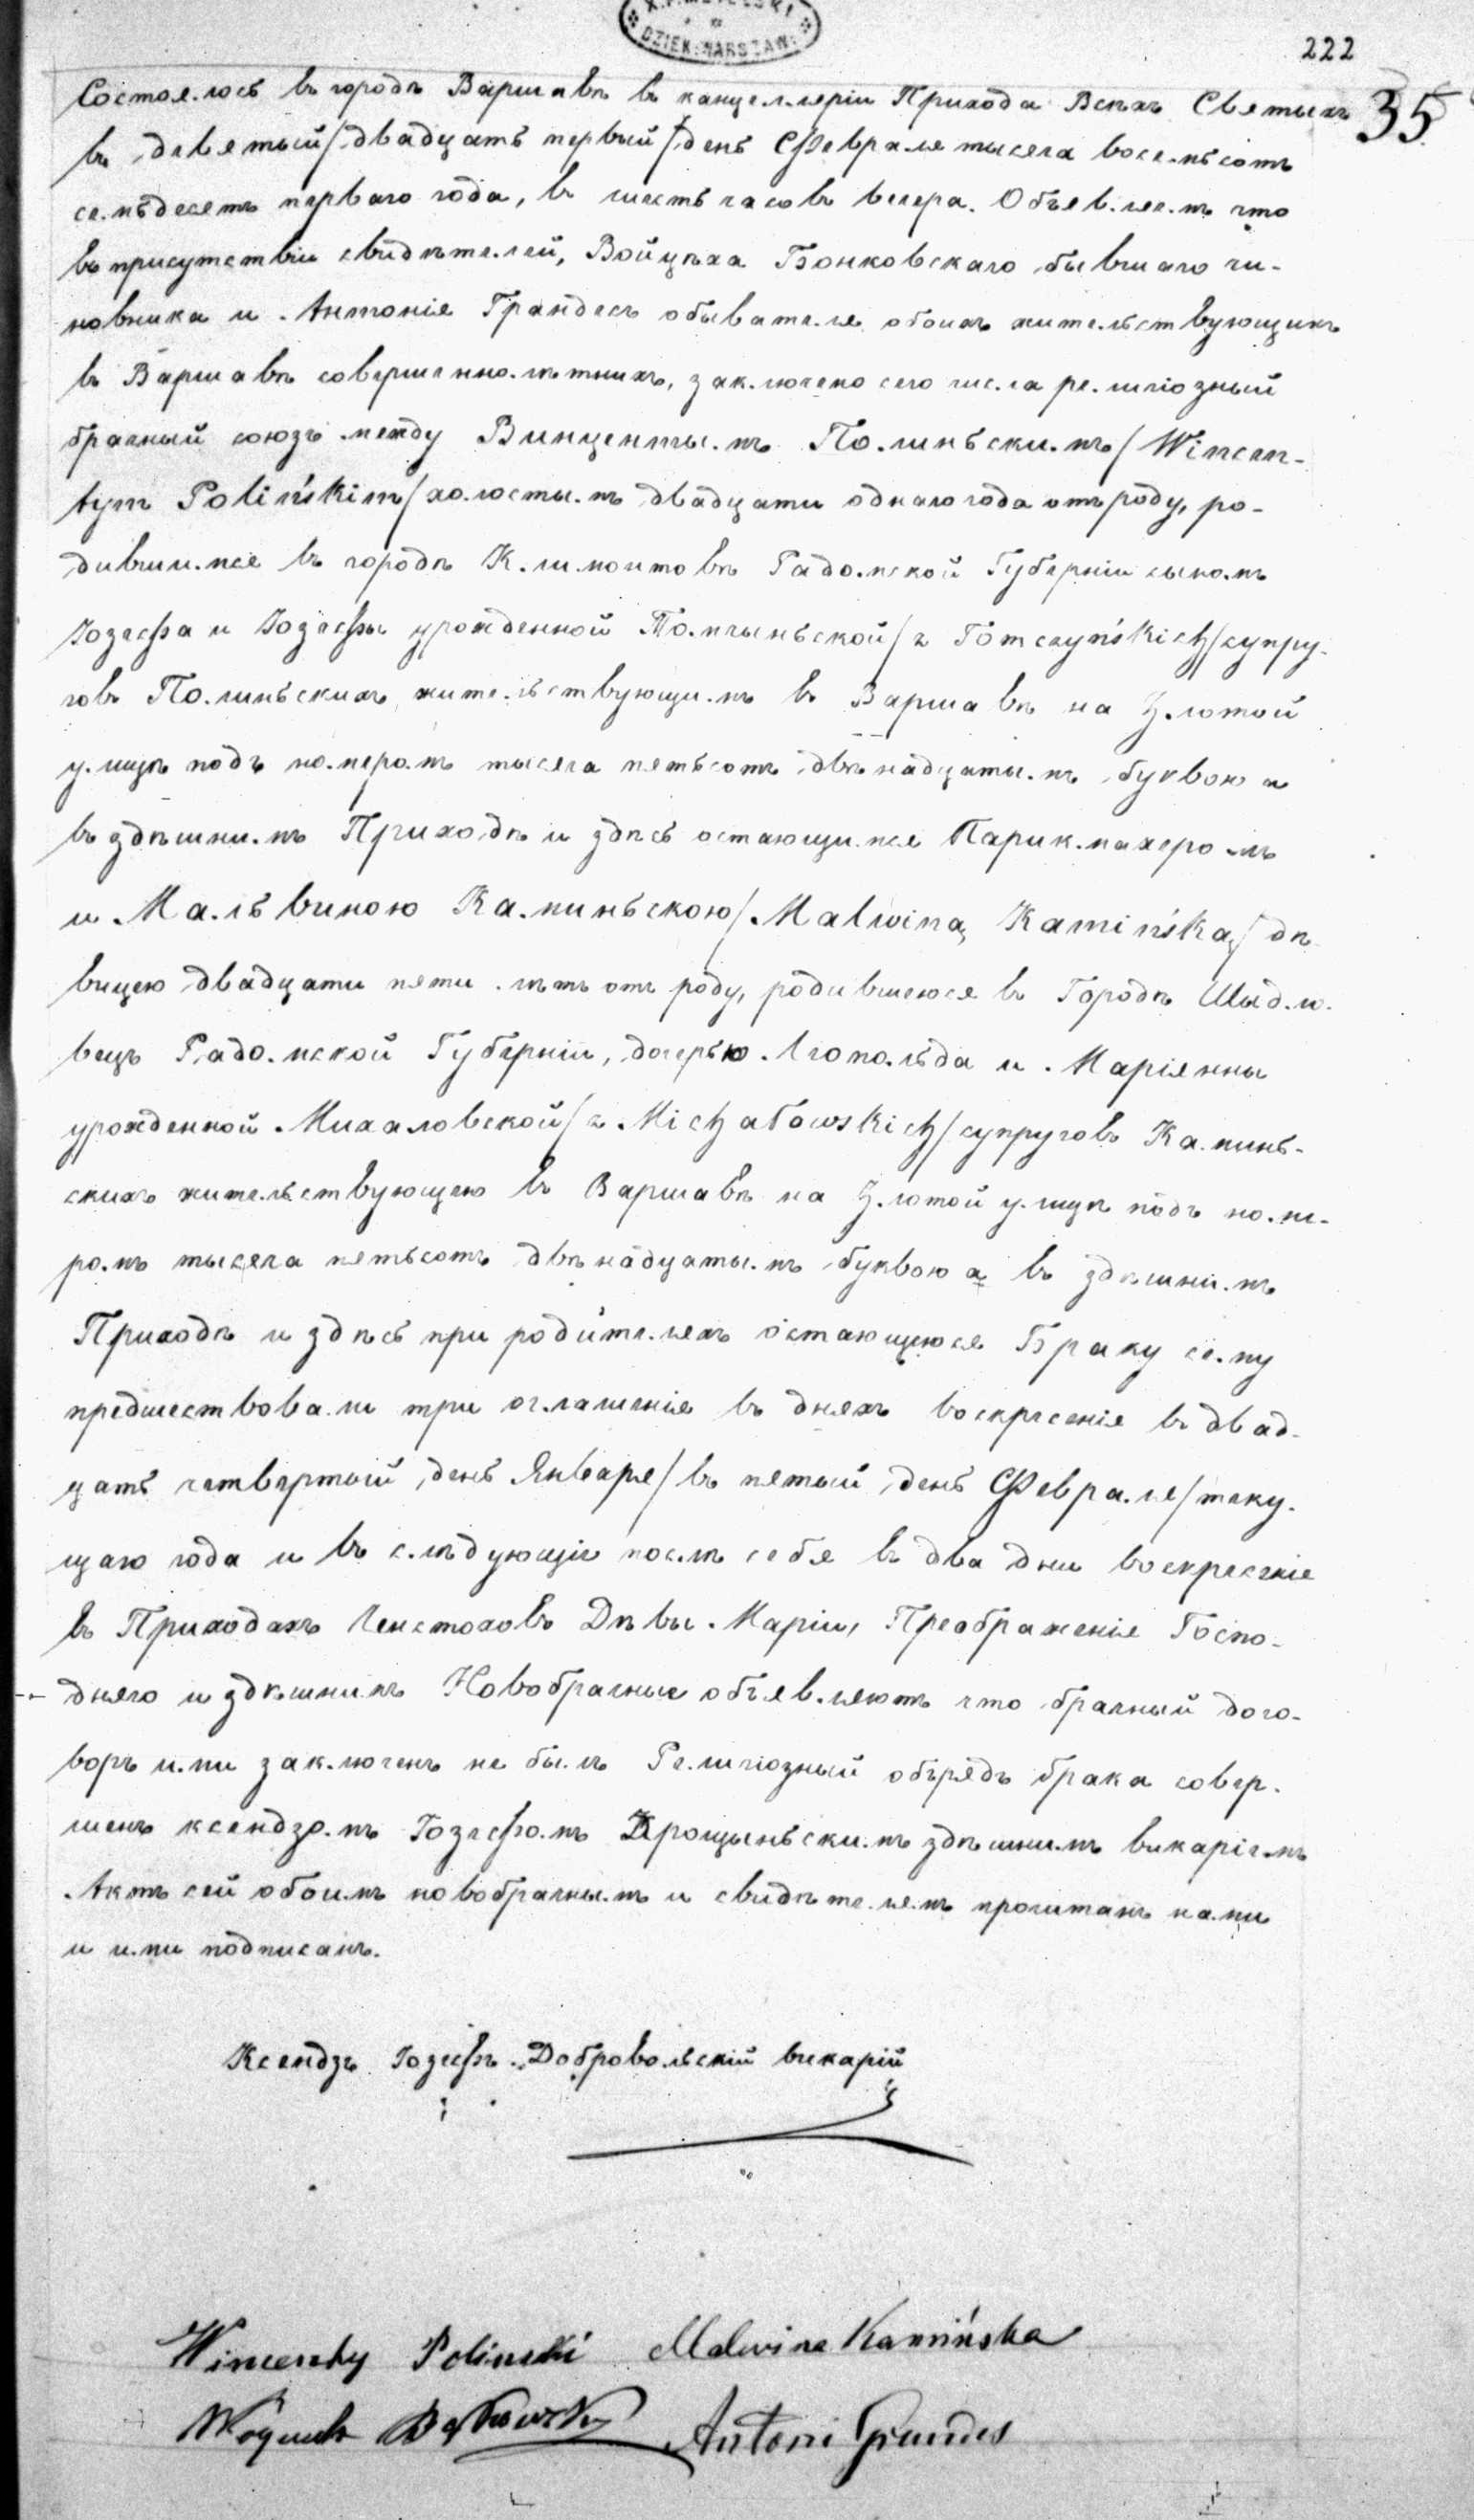 DZIEK. WARSZAW.
222
35.
Состоялось въ городѣ Варшавѣ въ канцелляріи Прихода Всѣхъ Святыхъ
въ девятый/двадцать первый/день Февраля тысяча восемьсотъ
семьдесятъ перваго года, въ шесть часовъ вечера. Объявляемъ что
въ присутствіи свидѣтелей, Войцѣха Бонковскаго бывшаго чи-
новника и Антонія Грандесъ обывателя обоихъ жительствующихъ
въ Варшавѣ совершеннолѣтнихъ, заключено сего числа религіозный
брачный союзъ между Винцентымъ Полиньскимъ/Wincen-
tym Polińskim/холостымъ двадцати однаго года отъ роду, ро-
дившимся въ городѣ Климонтовѣ Радомской Губерніи сыномъ
Іозефа и Іозефы урожденной Томчыньской/z Tomczyńskich/супру-
говъ Полиньскихъ жительствующимъ въ Варшавѣ на Злотой
улицѣ подъ номеромъ тысяча пятьсотъ двѣнадцатымъ буквою а
въ здѣшнимъ Приходѣ и здѣсь остающимся Парикмахеромъ
и Мальвиною Каминьскою/Malwiną Kamińską/дѣ-
вицею двадцати пяти лѣтъ отъ роду, родившеюся въ Городѣ Шыдло-
вецъ Радомской Губерніи, дочерью Леопольда и Маріянны
урожденной Михаловской/z Michałowskich/супруговъ Каминь-
скихъ жительствующею въ Варшавѣ на Злотой улицѣ подъ номе-
ромъ тысяча пятьсотъ двѣнадцатымъ буквою а въ здѣшнимъ
Приходѣ и здѣсь при родителяхъ остающеюся Браку сему
предшествовали три оглашенія въ дняхъ воскресенія въ двад-
цать четвертый день Января/въ пятый день Февраля/теку-
щаго года и въ слѣдующіе послѣ себя въ два дни воскресенія
въ Приходахъ Ченстоховъ Дѣвы Маріи, Преображенія Госпо-
дняго и здѣшнимъ Новобрачные объявляютъ что брачный дого-
воръ ими заключенъ не былъ Религіозный обрядъ брака совер-
шенъ ксендзомъ Іозефомъ Крощыньскимъ здѣшнимъ викаріемъ
Актъ сей обоимъ новобрачнымъ и свидѣтелямъ прочитанъ нами
и ими подписанъ.
Ксендзъ Іозефъ Добровольскій викарій
Wincenty Poliński Malwina Kamińska
Wojciech Bąkowski Antoni Grandes